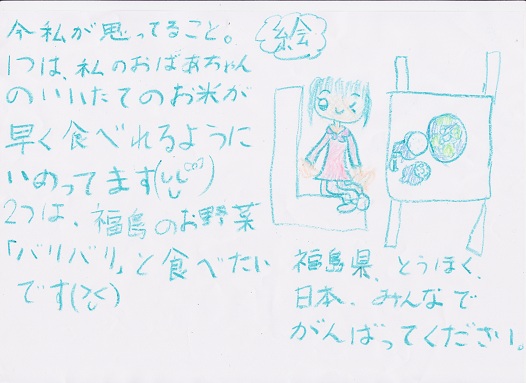 今私が思ってること。
1つは、私のおばあちゃん
のいいたてのお米が
早く食べれるように
いのってます
2つは、福島のお野菜
「バリバリ」と食べたい
です(>く)
絵
福島県、とうほく、
日本、みんなで
がんばってください。